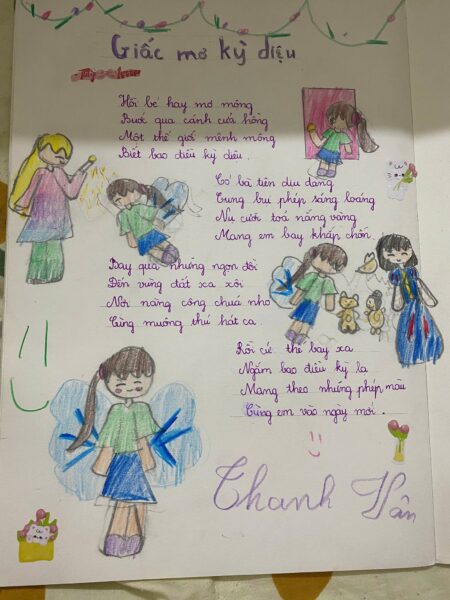 Giấc mơ kỳ diệu
Hồi bé hay mơ mộng
Bước qua cánh cửa hồng
Một thế giới mênh mông
Biết bao điều kỳ diệu.
Có bà tiên dịu dàng
Cùng bụi phép sáng loáng
Nụ cười toả nắng vàng
Mang em bay khắp chốn
Bay qua những ngọn đồi
Đến vùng đất xa xôi
Nơi nàng công chúa nhỏ
Cùng muông thú hát ca.
Rồi cứ thế bay xa
Ngắm bao điều kỳ lạ
Mang theo những phép màu
Cùng em vào ngày mới.
Thanh Vân